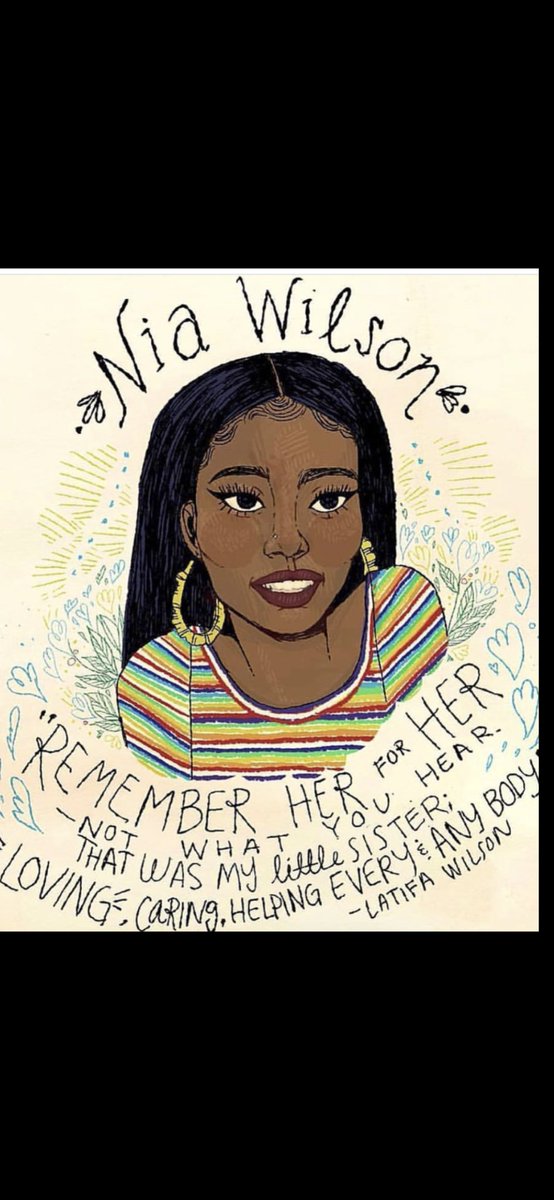 Nia Wilson
"REMEMBER HER FOR HER
-NOT WHAT YOU HEAR.
THAT WAS MY little SISTER;
LOVING, CARING, HELPING EVERY & ANY BODY"
-LATIFA WILSON